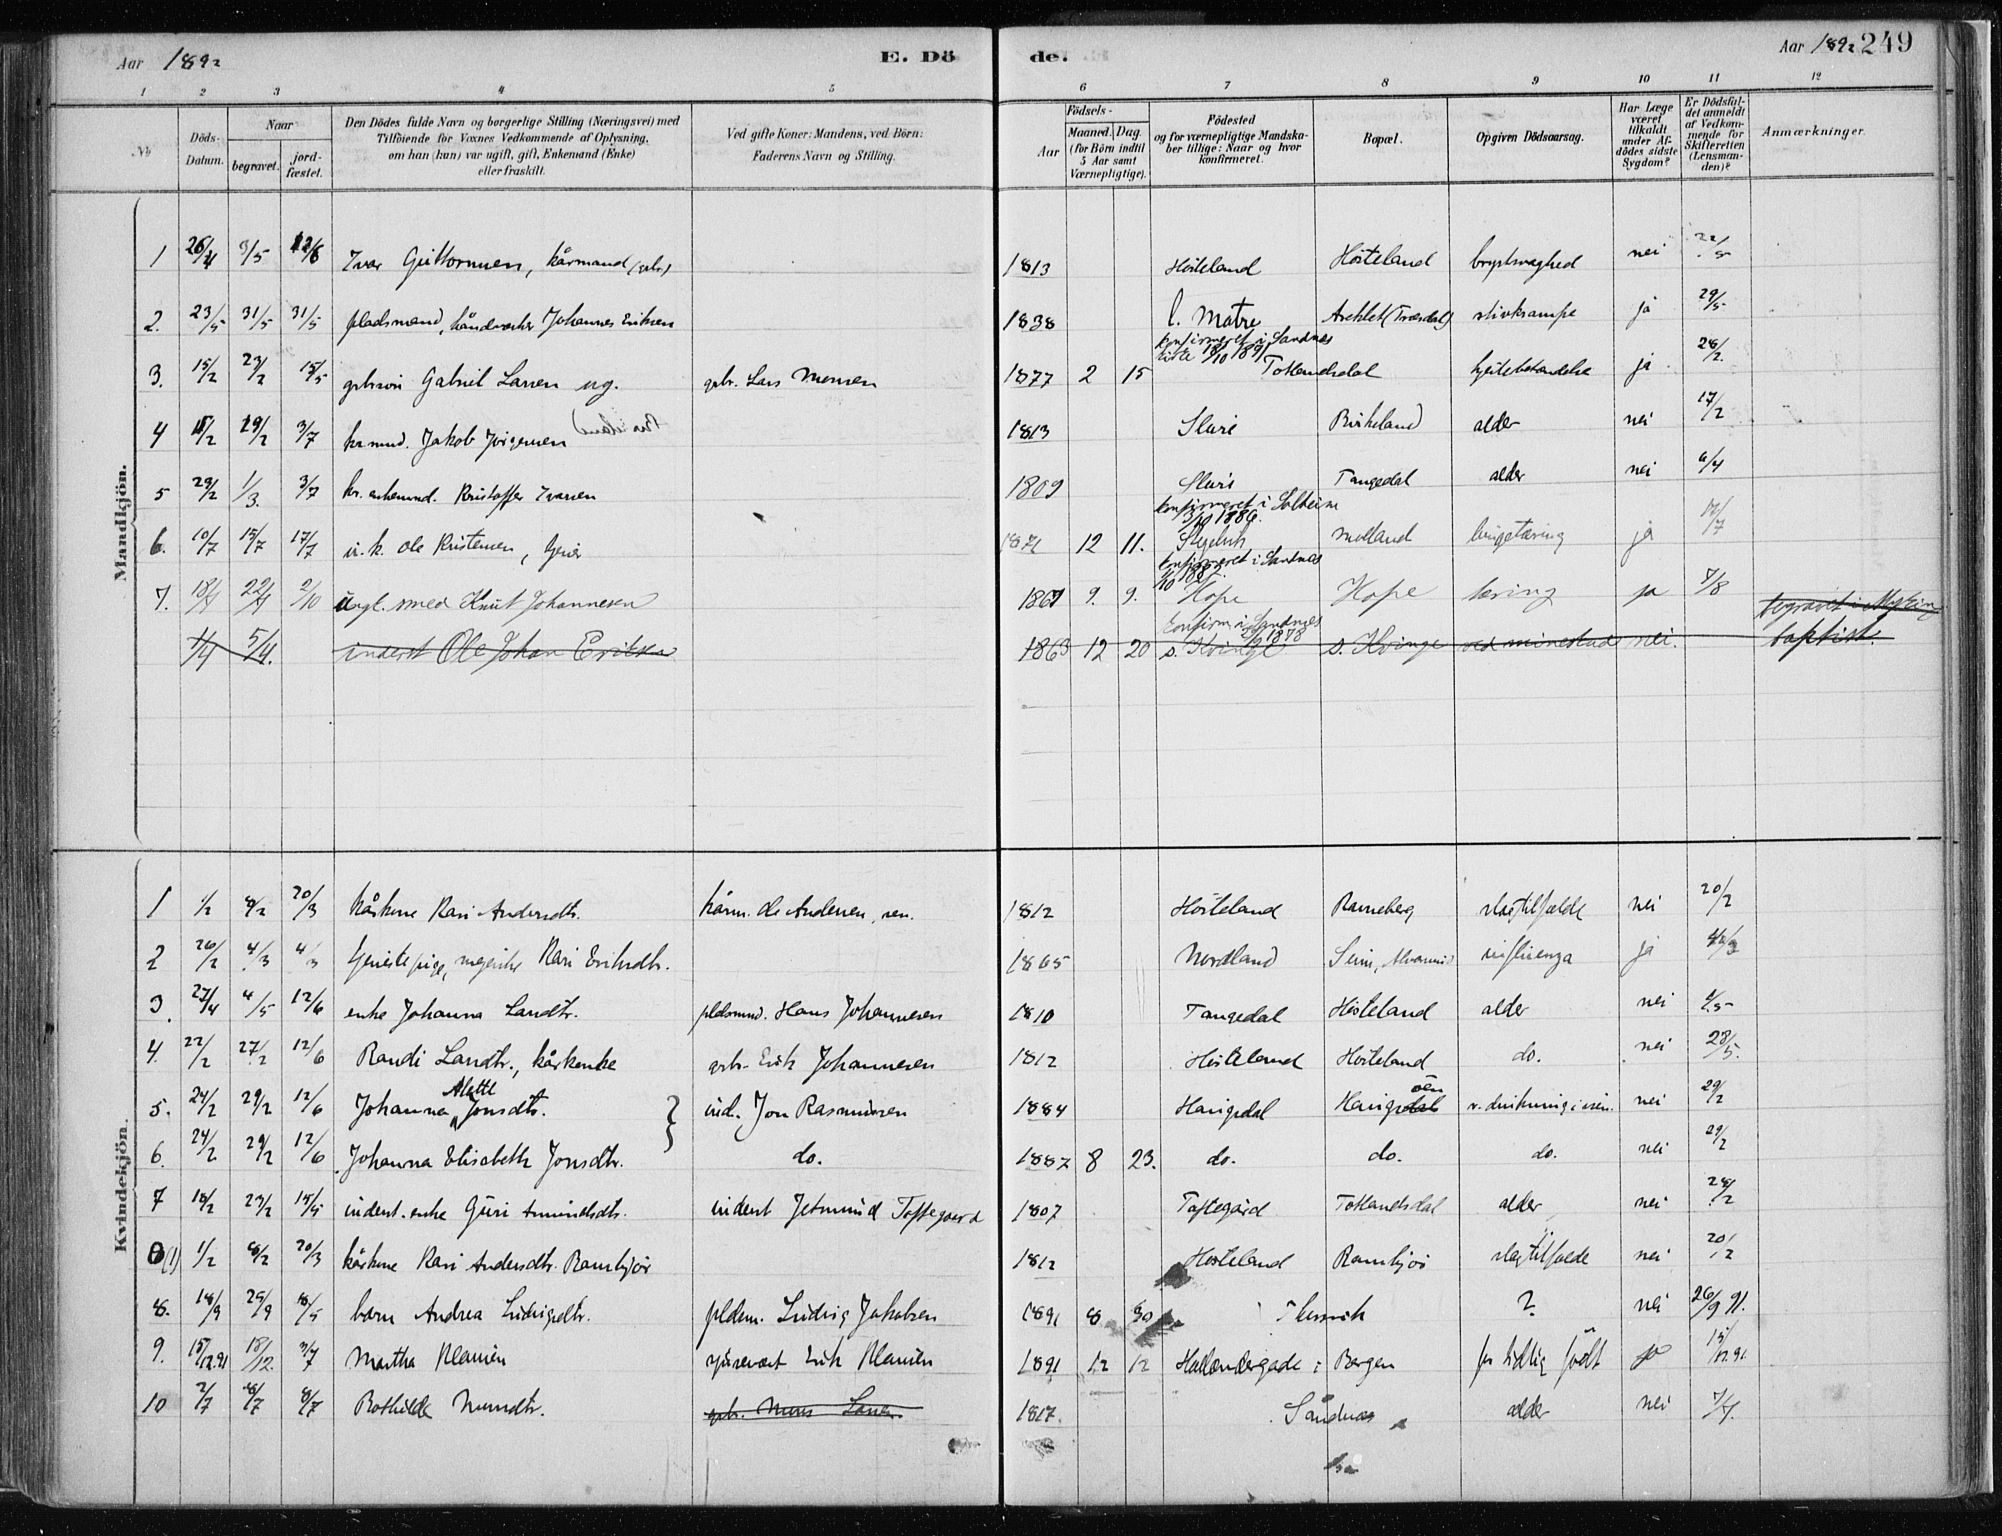 Aar 1892 E. Dö de. Aar 1892 249
1 2 3 4 5 6 7 8 9 10 11 12
No
Döds-Datum.
Naar
begravet.
jord-fæstet.
Den Dödes fulde Navn og borgerlige Stilling (Næringsvei) med
Tilföiende for Voxnes Vedkommende af Oplysning,
om han (hun) var ugift, gift, Enkemand (Enke)
eller fraskilt.
Ved gifte Koner: Mandens, ved Börn:
Faderens Navn og Stilling.
Födsels-
Aar
Maaned. Dag.
(for Börn indtil
5 Aar samt
Værnepligtige).
Födested
og for værnepligtige Mandska-
ber tillige: Naar og hvor
konfirmeret.
Bopæl.
Opgiven Dödsaarsag.
Har Læge
været
tilkaldt
under Af-
dödes sidste
Sygdom?
Er Dödsfal-
det anmeldt
af Vedkom-
mende for
Skifteretten
(Lensman-
den)?
Anmærkninger.
Mandkjön.
1 26/4 3/5 12/6 Ivar Guttormsen, kårmand 1813 Hösteland Hösteland brystsvaghed nei
2. 23/5 31/5 31/5 pladsmand, håndverker Johannes Eriksen 1838 l. Matre stivkrampe ja 29/5
konfirmeret i Sandnes
kirke 18/10 1891
3. 15/2 23/2 15/5 gbrsön Gabriel Larsen ug. gbr. Lars Monsen 1877 2 15 Totlandsdal hjertebetændelse ja 28/2
4 18/2 29/2 3/7 kr.mnd. Jakob Jörgensen 1813 Slure Birkeland alder nei 17/2
5 29/2 1/3. 3/7 kr. enkemnd. Kristoffer Ivarsen 1809 Slure Tangedal alder nei 6/4
konfirmeret i Solheim
3/10 1886.
6. 10/7 15/7 17/7 u.k. Ole Kristensen 1871 12 11. Molland lungetæring ja
konfirmeret i Sandnes
7. 22/7 2/10 ungk. smed Knut Johannesen 1867 9. 9. Hope Hope tæring ja 7/8
begravet i
Konfirm. i Sandnes
1878
1/4 5/4. inderst Ole Johan Eriksen 1863 12 20 s. Kvinge s. Kvinge nei. baptist
Kvindekjön.
1 1/2 8/2 20/3 kårkone Kari Andersdtr. kårm. Ole Andersen, sen. 1812 Hösteland Ramsberg slagtilfælde nei 20/2
2 26/2 4/3 4/3 tjenestepige, Kari Eriksdtr. 1865 Nordland Seim, influenza ja
3. 27/4 4/5 12/6 enke Johanna Larsdtr. pldsmnd. Hans Johannesen 1810 Tangedal Hösteland alder nei 4/5
4. 22/2 27/2 12/6 Randi Larsdtr., kårkenke gbr. Erik Johannesen 1812 Hösteland Hösteland do. nei 28/5.
5. 24/2 29/2 12/6 Johanna Alette Jonsdtr. ind. Jon Rasmussen 1884 Haugsdal Haugsdalöen v. drukning i nei 29/2
6. 24/2 29/2 12/6 Johanna Elisabeth Jonsdtr. do. 1887 8 23. do. do. do. nei 29/2
7 18/2 23/2 15/5 inderst. enke Guri Amundsdtr. inderst Jetmund Toftegaard 1807 Toftegård Totlandsdal alder nei 28/2
8(1) 1/2 8/2 20/3 kårkone Kari Andersdtr. 1812 Hösteland slagtilfælde nei 20/2
8. 18/9 25/9 18/5 barn Andrea Ludvigsdtr. pldsm. Ludvig Jakobsen 1891 8 30 ? nei 26/9 91.
9. 15/12.91 18/12. 3/7 Martha Klausen Erik Klausen 1891 12 12 Hollendergade i Bergen for tidlig född ja 15/12.91.
10 2/7 8/7 8/7 Bothilde Monsdtr. gbr. Mons Larsen 1817 Såndnes alder nei 7/7.